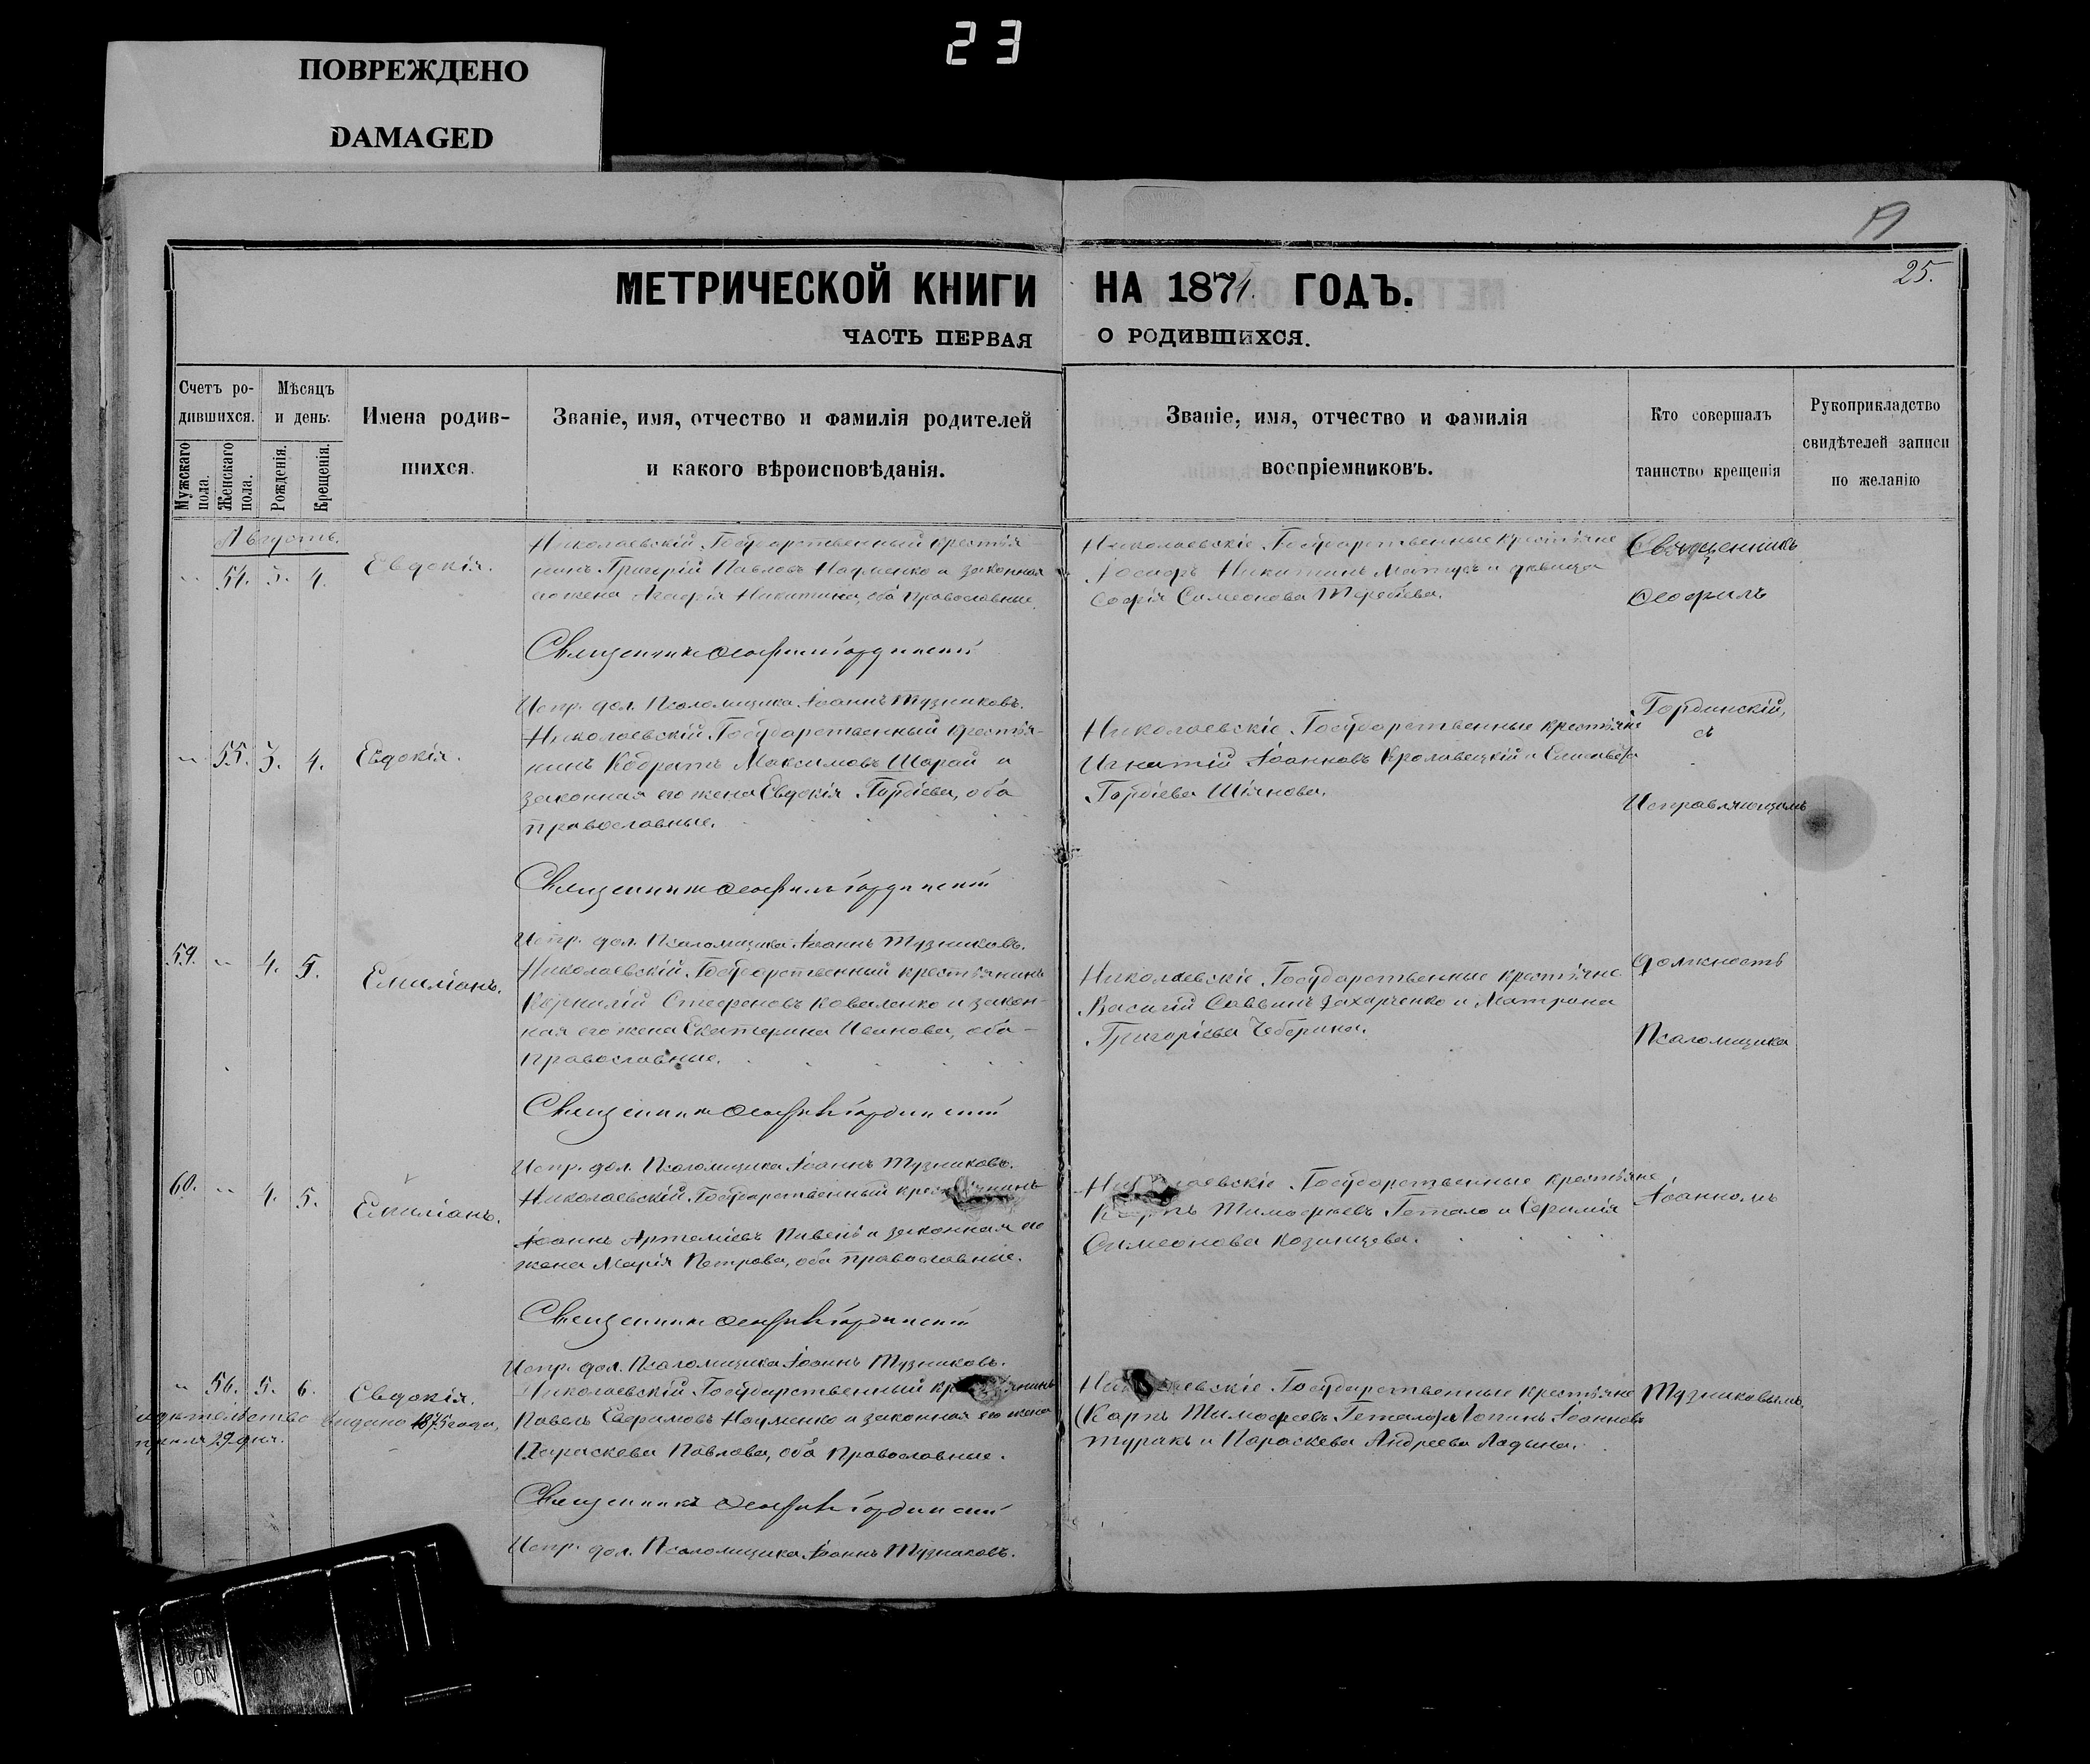 23
ПОВРЕЖДЕНО
DAMAGED
25.
МЕТРИЧЕСКОЙ КНИГИ НА 1874. ГОДЪ.
ЧАСТЬ ПЕРВАЯ О РОДИВШИХСЯ.
Счетъ родившихся.
Мужскаго пола.
Женскаго пола.
Мѣсяцъ и день.
Рожденія.
Крещенія.
Имена родившихся.
Званіе, имя, отчество и фамилія родителей
и какого вѣроисповѣданія.
Званіе, имя, отчество и фамилія
воспріемниковъ.
Кто совершалъ
таинство крещенія
Рукоприкладство
свидѣтелей записи
по желанію
Августъ.
" 54. 3. 4. Евдокія.
Николаевскій Государственный крестья
нинъ Григорій Павловъ Науменко и законная
его жена Агафія Никитина, оба православные.
Николаевскіе Государственные крестьяне
Іосифъ Никитинъ и дѣвица
Софія Симеонова
Священникъ Ѳеофилъ Гординскій
Испр. дол. Псаломщика Іоаннъ Музниковъ.
" 55. 3. 4. Евдокія.
Николаевскій Государственный крестья-
нинъ Кодратъ Максимовъ Шарай и
законная его жена Евдокія Гордіева, оба
православные.
Николаевскіе Государственные крестьяне
Игнатій Іоанновъ Кроливецкій и Елисавета
Гордіева Шіянова.
Священникъ Ѳеофилъ Гординскій
Испр. дол. Псаломщика Іоаннъ Музниковъ.
59. " 4. 5. Емиліанъ.
Николаевскій Государственный крестьянинъ
Корнилій Стефановъ Коваленко и закон-
ная его жена Екатерина Иванова, оба
православные.
Николаевскіе Государственные крестьяне
Василій Саввинъ Захарченко и Матрона
Григоріева Чеберина.
Священникъ Ѳеофилъ Гординскій
Испр. дол. Псаломщика Іоаннъ Музниковъ.
60. " 4. 5. Емиліанъ.
Николаевскій Государственный крестьянинъ
Іоаннъ Артеміевъ Пивень и законная его
жена Марія Петрова, оба православные.
Николаевскіе Государственные крестьяне
Карпъ Тимофеевъ Гетало и
Симеонова Козинцева.
Священникъ Ѳеофилъ Гординскій
Испр. дол. Псаломщика Іоаннъ Музниковъ.
" 56. 5. 6. Евдокія.
выдано 1875 года,
29 дня.
Николаевскій Государственный крестьянинъ
Павелъ Ефимовъ Науменко и законная его жена
Параскева Павлова, оба православные.
Николаевскіе Государственные крестьяне
Карпъ Тимофеевъ Гетало, Іоанновъ
Турикъ и Параскева Андреева Ладына.
Священникъ Ѳеофилъ Гординскій
Испр. дол. Псаломщика Іоаннъ Музниковъ.
Священникъ
Ѳеофилъ
Гординскій,
съ
Исправляющимъ
должность
Псаломщика
Іоанномъ
Музниковымъ.